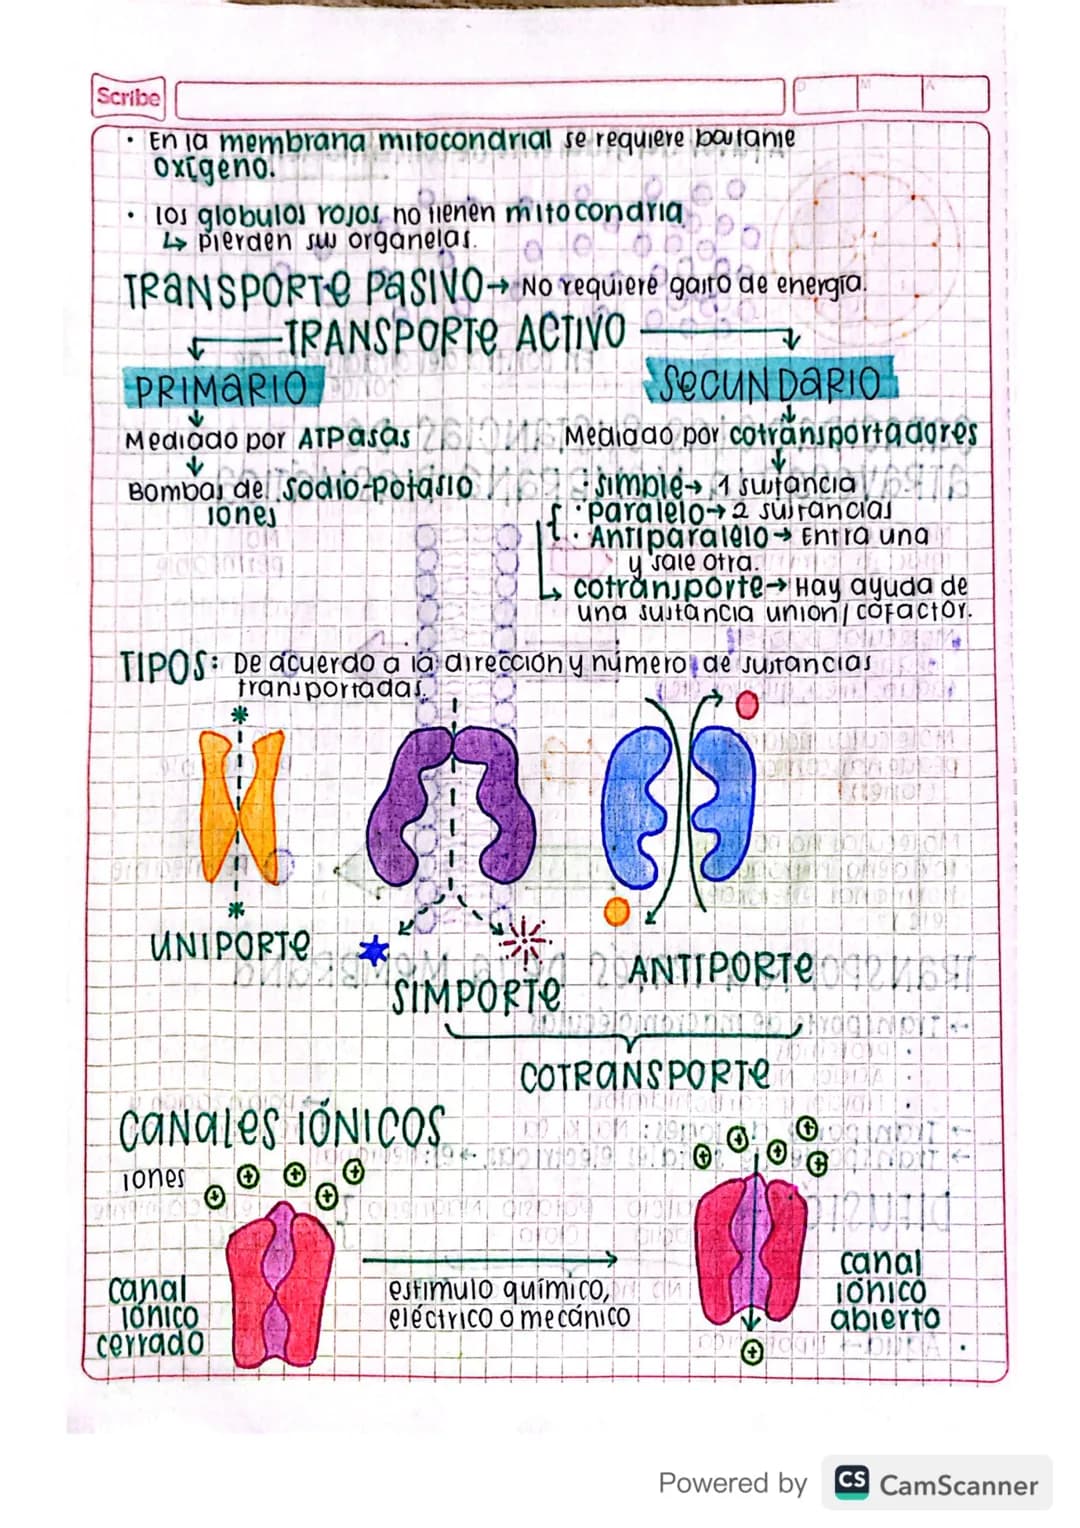 Scribe
D M A
• En la membrana mitocondrial se requiere bastante
oxígeno.
• los globulos rojos no tienen mitocondria
↳ pierden sus organelas.
TRANSPORTE PASIVO → No requiere gasto de energía.
TRANSPORTE ACTIVO
PRIMARIO
SECUNDARIO
Mediado por ATPasas
Mediado por cotransportadores
Bombas de Sodio-Potasio
iones
• simple → 1 sustancia
• paralelo → 2 sustancias
• Antiparalelo → Entra una
y sale otra.
↳ cotransporte → Hay ayuda de
una sustancia union/cofactor.
TIPOS: De acuerdo a la dirección y número de sustancias
transportadas.
UNIPORTE
SIMPORTE
ANTIPORTE
COTRANSPORTE
CANALES IÓNICOS
iones
canal
iónico
cerrado
estimulo químico,
eléctrico o mecánico
canal
iónico
abierto
Powered by CS CamScanner